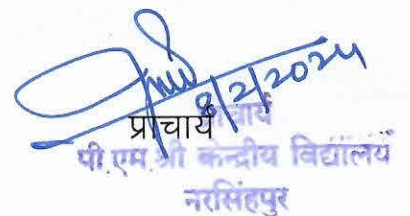 8/2/2024
प्राचार्य
प्राचार्य
पी.एम.श्री केन्द्रीय विद्यालय
नरसिंहपुर